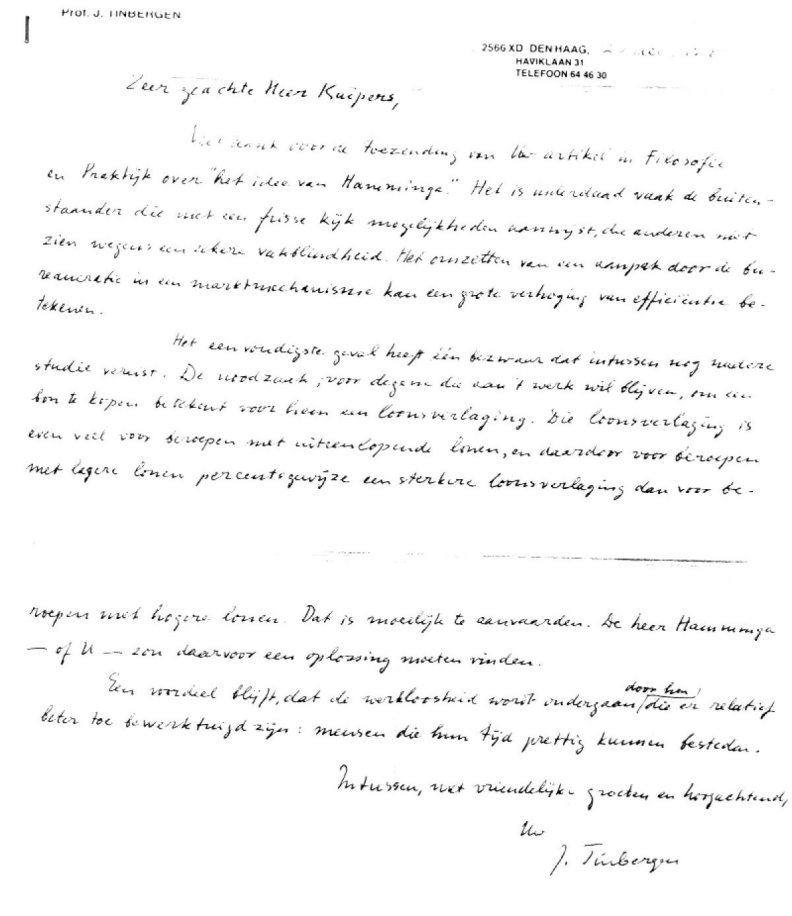 Prof. J. TINBERGEN
2566 XD DEN HAAG,
HAVIKLAAN 31
TELEFOON 64 46 30
Zeer geachte Heer Kuipers,
Veel dank voor de toezending van Uw artikel in Filosofie
en Praktijk over "het idee van Hamminga." Het is inderdaad vaak de buiten-
staander die met een frisse kijk mogelijkheden aanwijst, die anderen niet
zien wegens een zekere vakblindheid. Het omzetten van een aanpak door de bu-
reaucratie in een marktmechanisme kan een grote verhoging van efficiëntie be-
tekenen.
Het eenvoudigste geval heeft één bezwaar dat intussen nog nadere
studie vereist. De noodzaak, voor degene die aan 't werk wil blijven, om een
bon te kopen betekent voor hem een loonsverlaging. Die loonsverlaging is
even veel voor beroepen met uiteenlopende lonen, en daardoor voor beroepen
met lagere lonen percentsgewijze een sterkere loonsverlaging dan voor be-
roepen met hogere lonen. Dat is moeilijk te aanvaarden. De heer Hamminga
— of U — zou daarvoor een oplossing moeten vinden.
Een voordeel blijft, dat de werkloosheid wordt ondergaan door hen die er relatief
beter toe bewerktuigd zijn: mensen die hun tijd prettig kunnen besteden.
Intussen, met vriendelijke groeten en hoogachtend,
Uw
J. Tinbergen